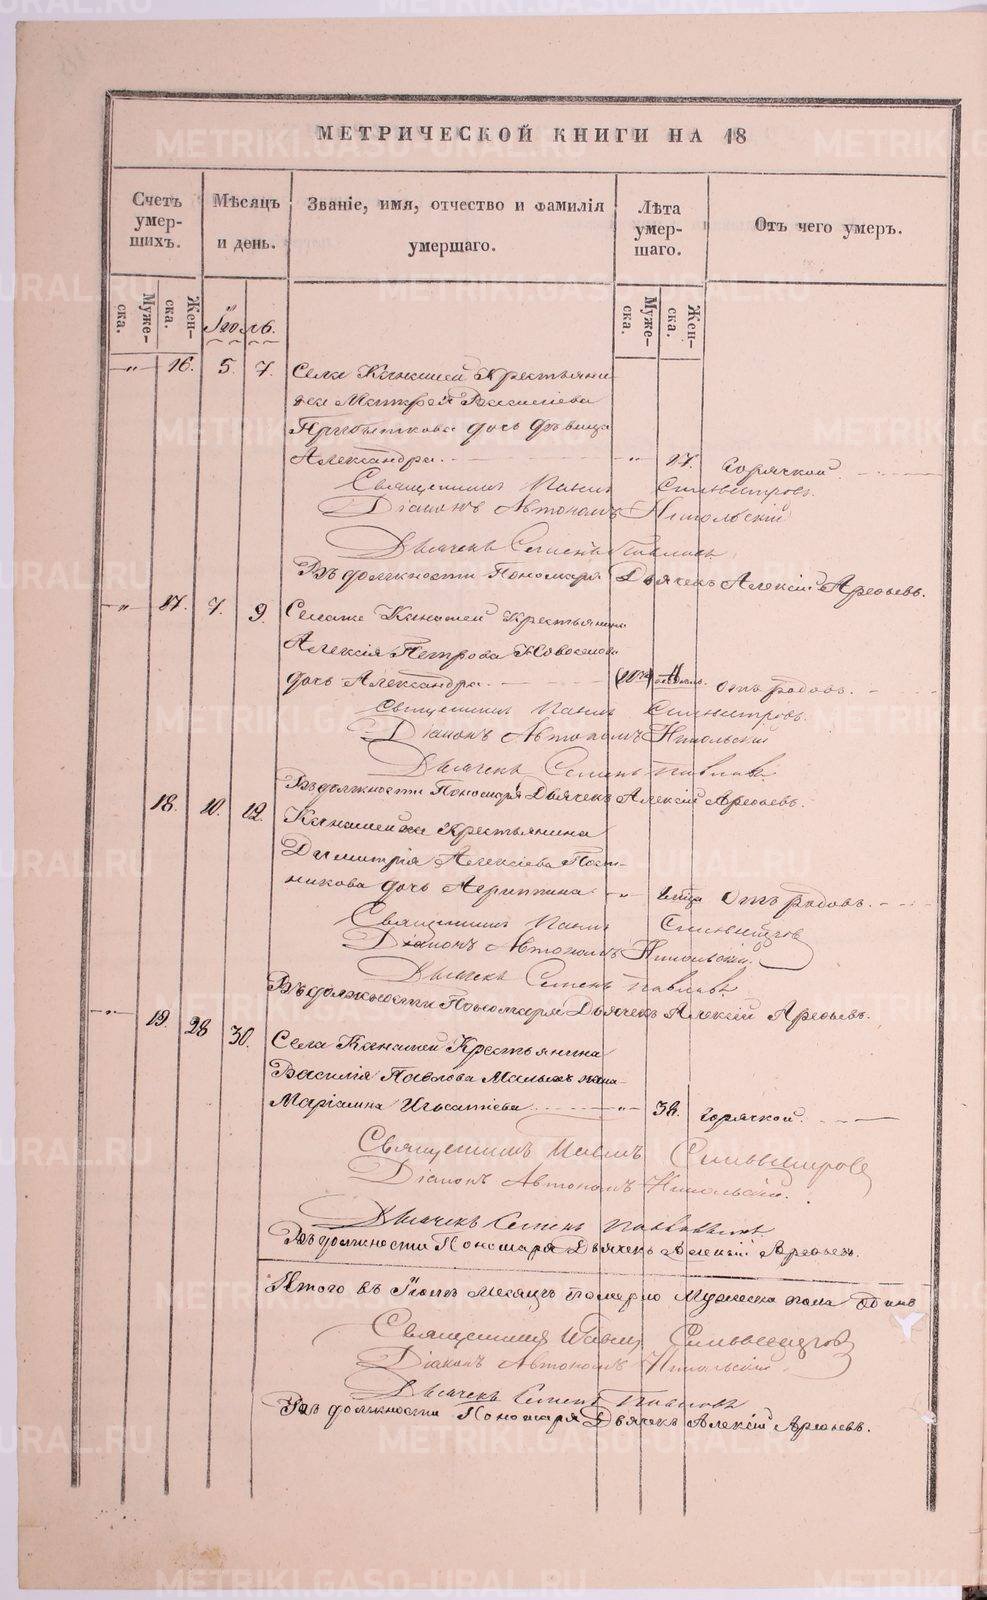 МЕТРИЧЕСКОЙ КНИГИ НА 18
Счетъ умер-шихъ.
Мѣсяцъ и день.
Званіе, имя, отчество и фамилія умершаго.
Лѣта умер-шаго.
Отъ чего умеръ.
Муже-ска.
Жен-ска.
Іюль.
Муже-ска.
Жен-ска.
16. 5. 7. Села Крестьяни-
на Василіева
дочь дѣвица
Александра. 17. горячкой
Священникъ Павелъ Сильвестровъ.
Діаконъ Автономъ Никольскій
Дьячекъ Семенъ Павловъ.
Въ должности Пономаря Дьячекъ Алексій Арефьевъ.
17. 7. 9. Крестьянина
Алексія Петрова
дочь Александра. отъ родовъ.
Священникъ Павелъ Сильвестровъ.
Діаконъ Автономъ Никольскій
Дьячекъ Семенъ Павловъ.
Въ должности Пономаря Дьячекъ Алексій Арефьевъ.
18. 10. 12. Крестьянина
Димитрія Алексіева Пост-
никова дочь Агриппина отъ родовъ.
Священникъ Павелъ Сильвестровъ
Діаконъ Автономъ Никольскій.
Дьячекъ Семенъ Павловъ.
Въ должности Пономаря Дьячекъ Алексій Арефьевъ.
19. 28 30. Села Крестьянина
Василія Павлова Малыхъ жена
Маріамна 38. горячкой.
Священникъ Павелъ Сильвестровъ
Діаконъ Автономъ Никольскій.
Дьячекъ Семенъ Павловъ.
Въ должности Пономаря Дьячекъ Алексій Арефьевъ.
Итого въ Іюлѣ Месяцѣ померло Мужеска пола одинъ
Священникъ Павелъ Сильвестровъ
Діаконъ Автономъ Никольскій.
Дьячекъ Семенъ Павловъ
Въ должности Пономаря Дьячекъ Алексій Арефьевъ.
METRIKI.GASO-URAL.RU